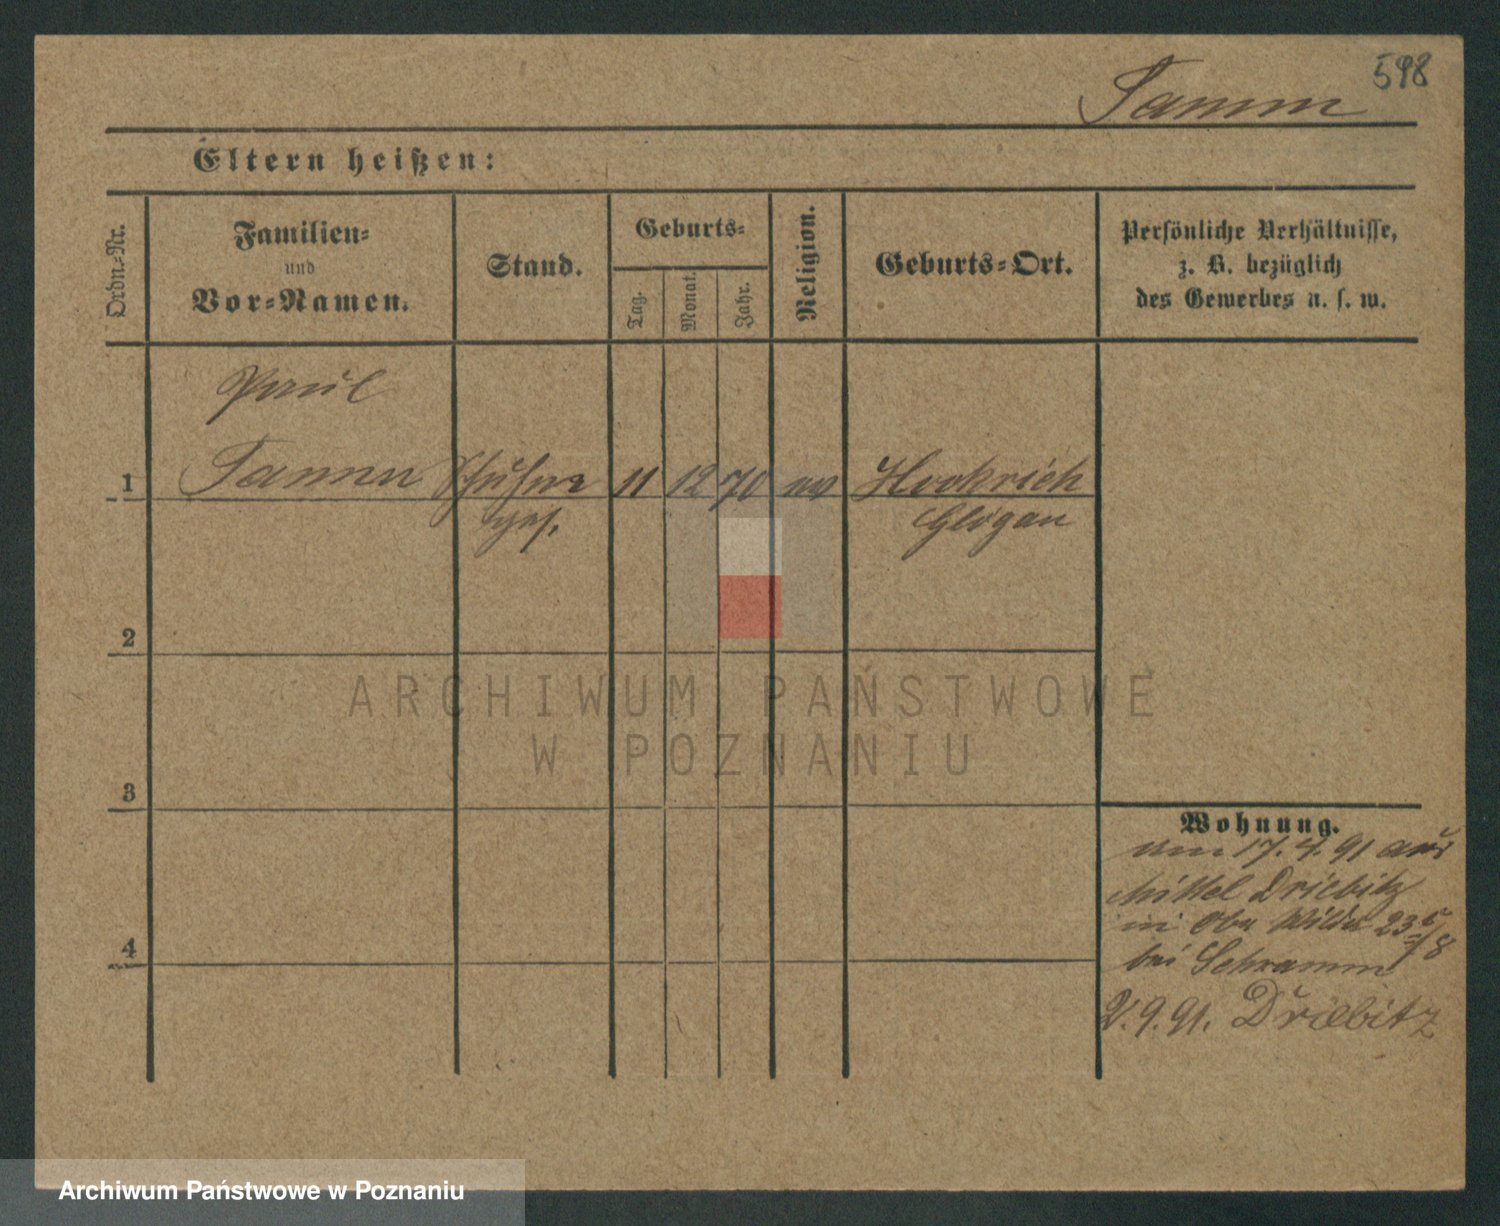 598
Tamm
Eltern heißen:
Ordn.-Nr.
Familien-
und
Vor-Namen.
Stand.
Geburts-
Tag.
Monat.
Jahr.
Religion.
Geburts-Ort.
Persönliche Verhältnisse,
z. B. bezüglich
des Gewerbes u. s. w.
Paul
1 Tamm 11 12 70 ev
ges. Glogau
2
3
4
ARCHIWUM PAŃSTWOWE
W POZNANIU
Wohnung.
am 17.4.91 aus
Mittel Driebitz
in Ober Wilda 23
bei Schramm
2.9.91. Driebitz
Archiwum Państwowe w Poznaniu